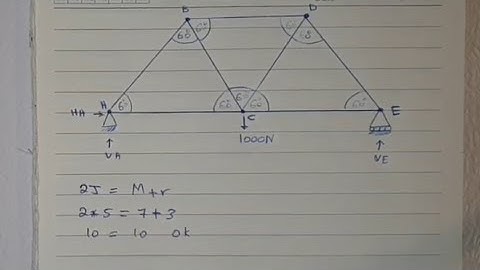 B D
60 60 60 60
HA A 60 60 60 60 60 E
C
VA 1000N VE
2J = M+r
2*5 = 7+3
10 = 10 ok